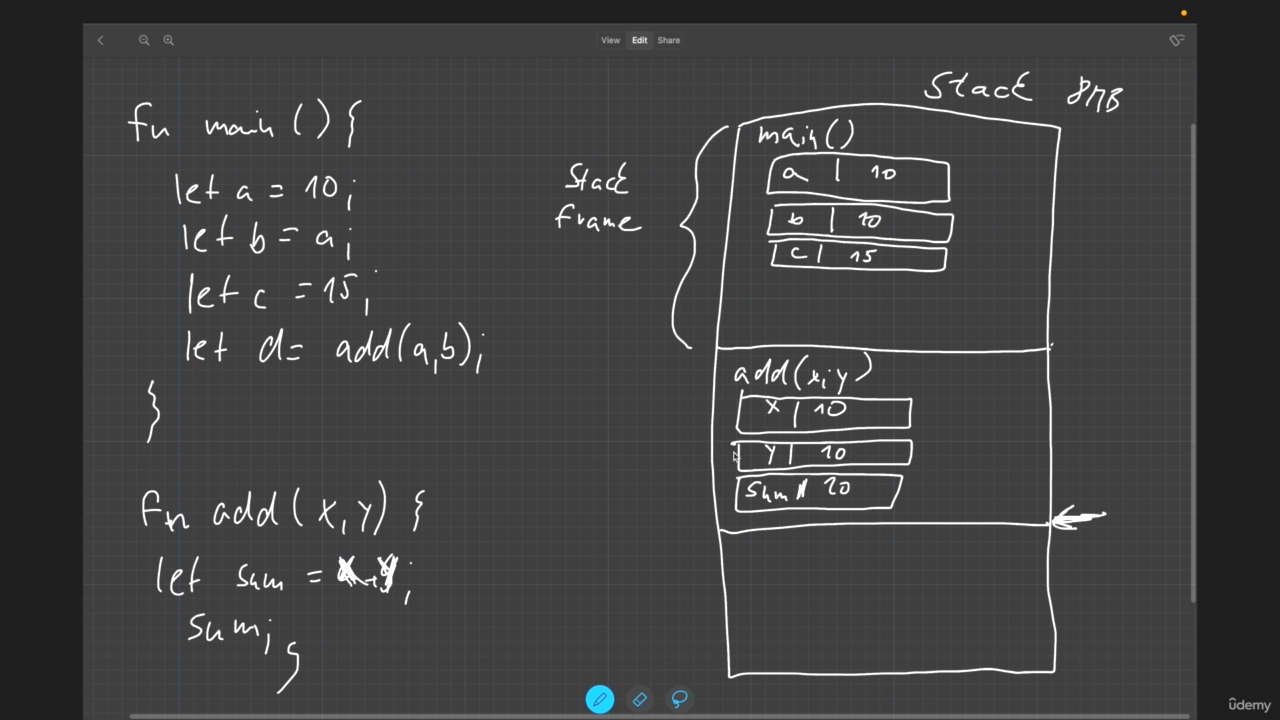 View Edit Share
fn main () {
let a = 10;
let b = a;
let c = 15;
let d = add(a,b);
}
fn add (x, y) {
let sum = x+y;
sum;
}
Stack 8MB
Stack
frame
main()
a | 10
b | 10
c | 15
add(x,y)
x | 10
y | 10
sum | 20
ûdemy